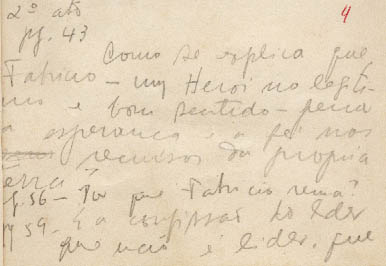 2º ato 4
pg. 43
Como se explica que,
Fabricio - um Heroi no legíti-
mo e bom sentido - perca
a esperança e a fé nos
recursos da propria
terra?
g. 56 - Por que Fabricio rema?
pg 59. É a confissão do lider
que não é lider, que